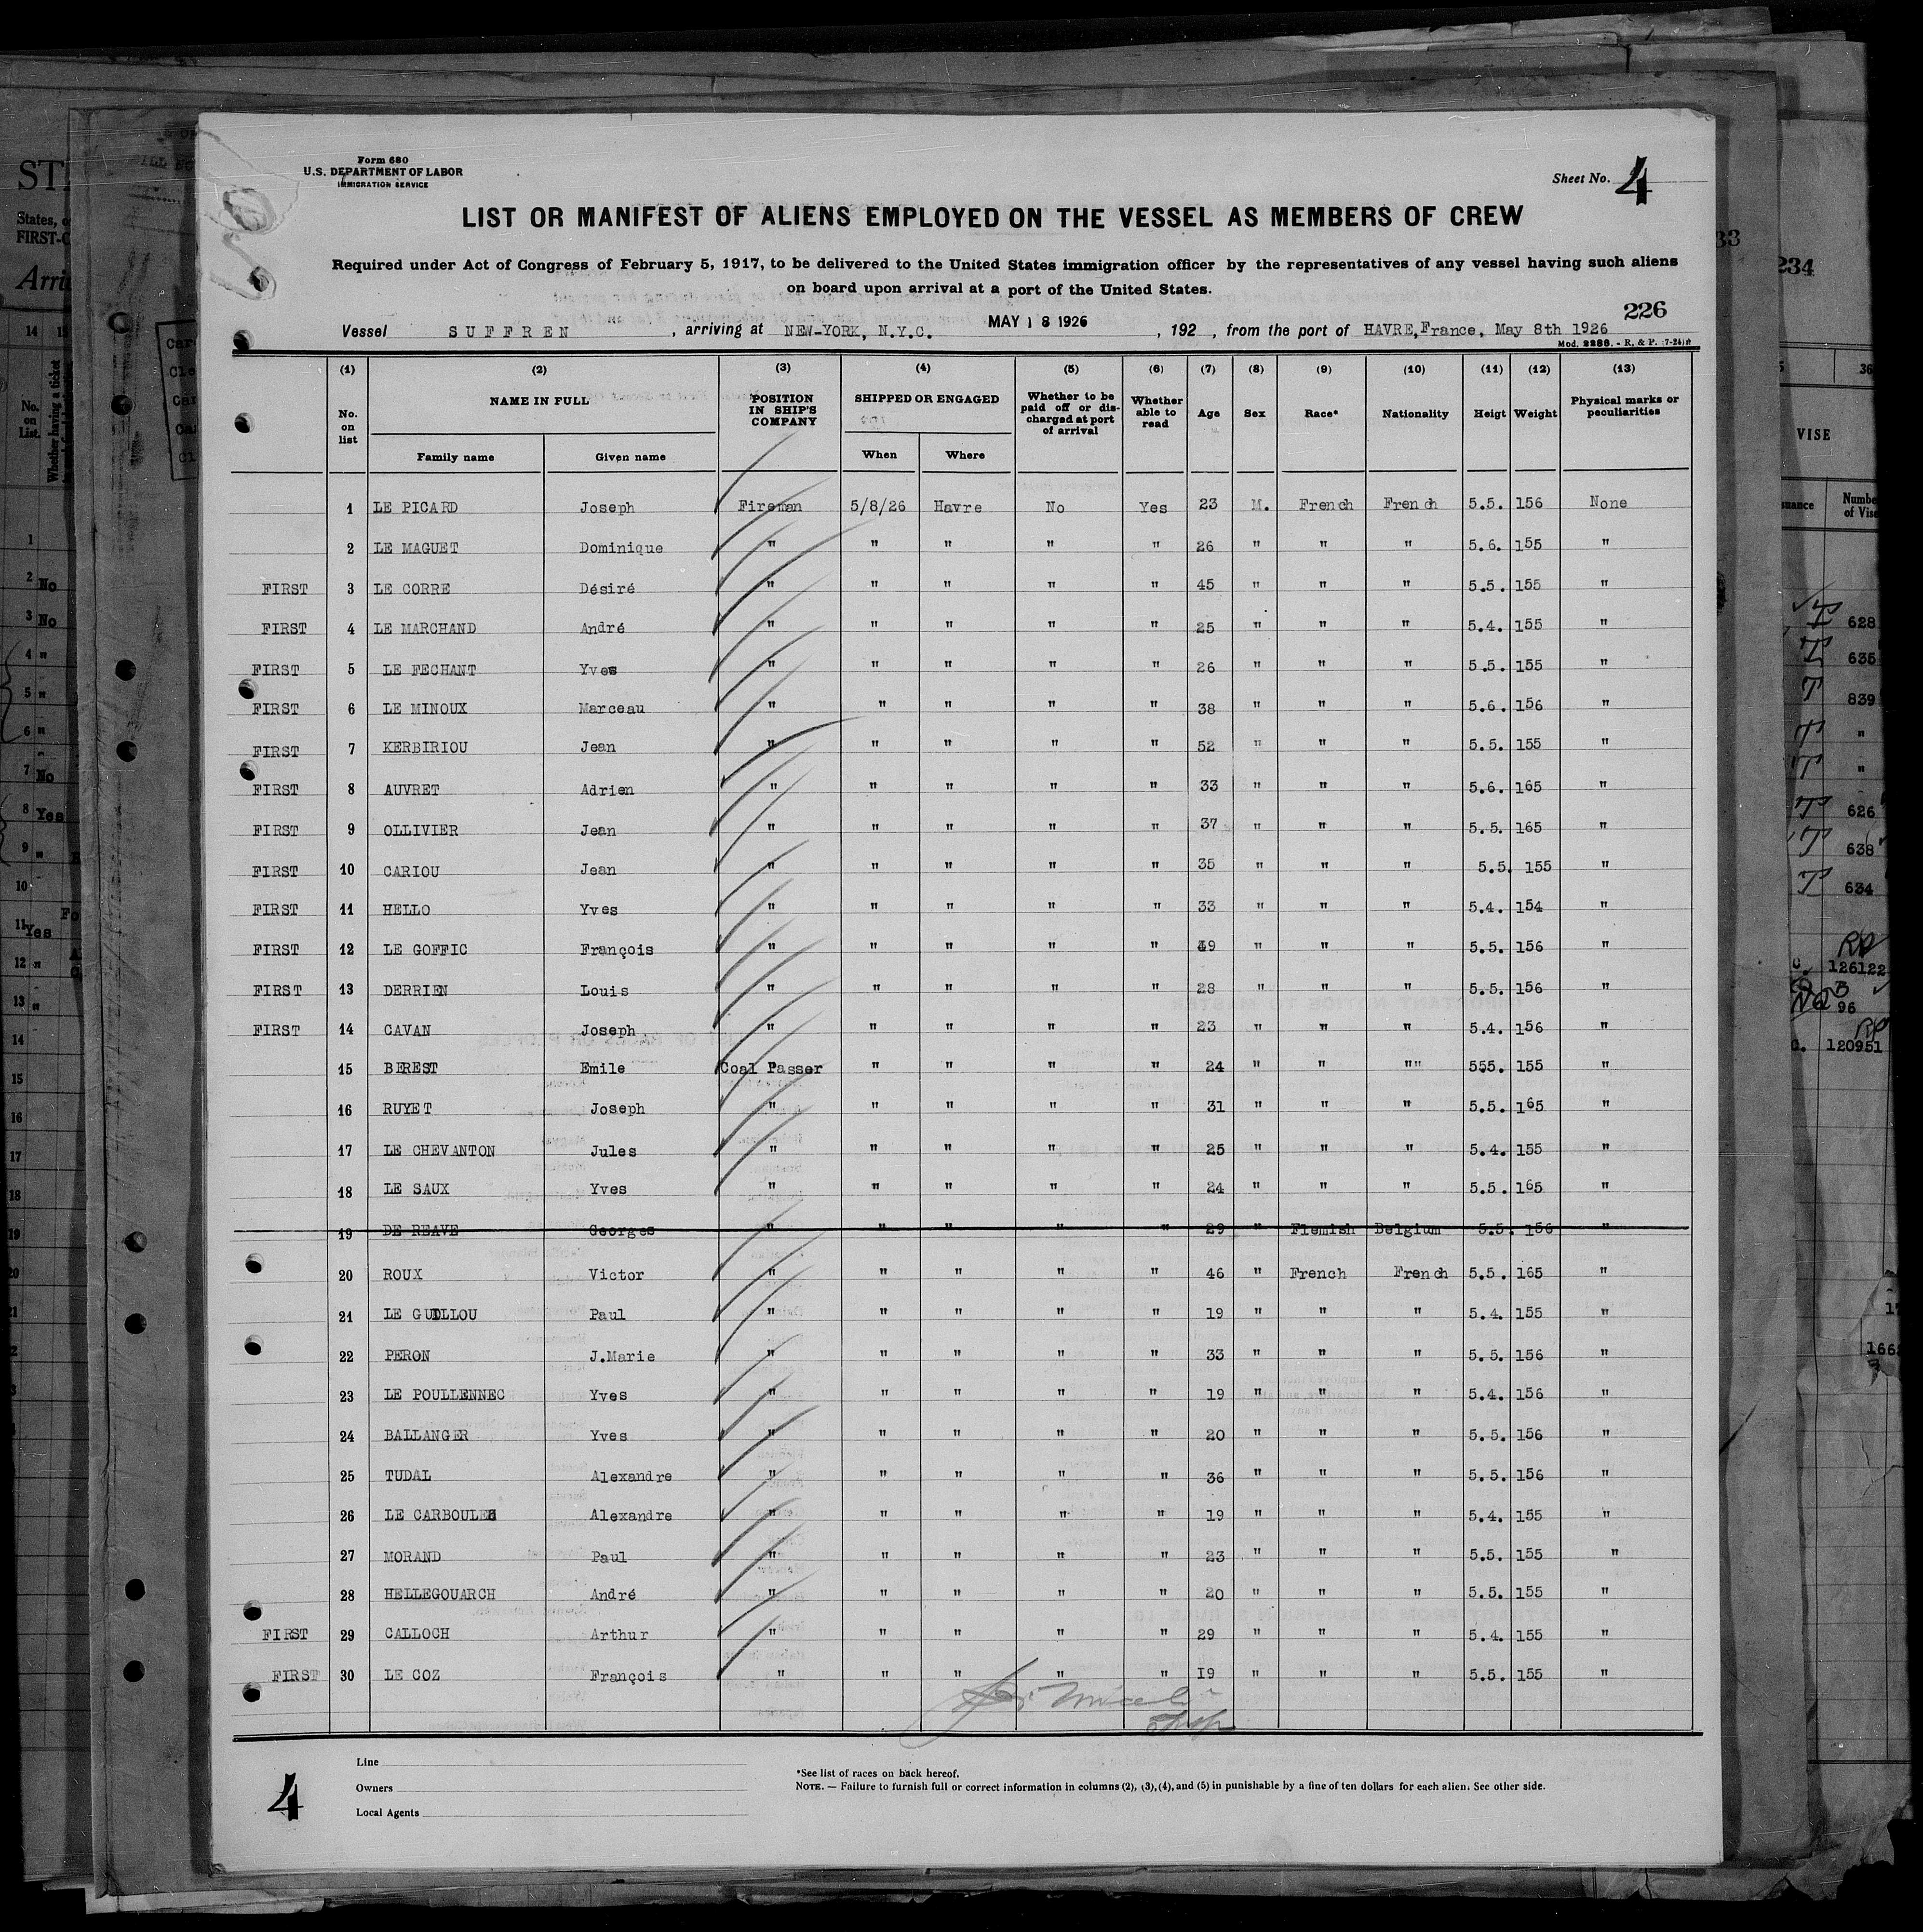 Form 680
U.S. DEPARTMENT OF LABOR
IMMIGRATION SERVICE
Sheet No. 4
LIST OR MANIFEST OF ALIENS EMPLOYED ON THE VESSEL AS MEMBERS OF CREW
Required under Act of Congress of February 5, 1917, to be delivered to the United States immigration officer by the representatives of any vessel having such aliens
on board upon arrival at a port of the United States.
226
Vessel SUFFREN, arriving at NEW-YORK, N.Y.C. MAY 18 1926, 192 , from the port of HAVRE, France, May 8th 1926
Mod. 2286. - R. & P. (7-24)
(1) (2) (3) (4) (5) (6) (7) (8) (9) (10) (11) (12) (13)
No. on list NAME IN FULL POSITION IN SHIP'S COMPANY SHIPPED OR ENGAGED Whether to be paid off or discharged at port of arrival Whether able to read Age Sex Race* Nationality Heigt Weight Physical marks or peculiarities
Family name Given name When Where
1 LE PICARD Joseph Fireman 5/8/26 Havre No Yes 23 M. French French 5.5. 156 None
2 LE MAGUET Dominique " " " " " 26 " " " 5.6. 155 "
FIRST 3 LE CORRE Désiré " " " " " 45 " " " 5.5. 155 "
FIRST 4 LE MARCHAND André " " " " " 25 " " " 5.4. 155 "
FIRST 5 LE FECHANT Yves " " " " " 26 " " " 5.5. 155 "
FIRST 6 LE MINOUX Marceau " " " " " 38 " " " 5.6. 156 "
FIRST 7 KERBIRIOU Jean " " " " " 52 " " " 5.5. 155 "
FIRST 8 AUVRET Adrien " " " " " 33 " " " 5.6. 165 "
FIRST 9 OLLIVIER Jean " " " " " 37 " " " 5.5. 165 "
FIRST 10 CARIOU Jean " " " " " 35 " " " 5.5. 155 "
FIRST 11 HELLO Yves " " " " " 33 " " " 5.4. 154 "
FIRST 12 LE GOFFIC François " " " " " 49 " " " 5.5. 156 "
FIRST 13 DERRIEN Louis " " " " " 28 " " " 5.5. 156 "
FIRST 14 CAVAN Joseph " " " " " 23 " " " 5.4. 156 "
15 BEREST Emile Coal Passer " " " " 24 " " "" 555. 155 "
16 RUYET Joseph " " " " " 31 " " " 5.5. 165 "
17 LE CHEVANTON Jules " " " " " 25 " " " 5.4. 155 "
18 LE SAUX Yves " " " " " 24 " " " 5.5. 165 "
19 DE REAVE Georges " " " " " 29 " Flemish Belgium 5.5. 156 "
20 ROUX Victor " " " " " 46 " French French 5.5. 165 "
21 LE GUILLOU Paul " " " " " 19 " " " 5.4. 155 "
22 PERON J.Marie " " " " " 33 " " " 5.5. 156 "
23 LE POULLENNEC Yves " " " " " 19 " " " 5.4. 156 "
24 BALLANGER Yves " " " " " 20 " " " 5.5. 156 "
25 TUDAL Alexandre " " " " " 36 " " " 5.5. 156 "
26 Alexandre " " " " " 19 " " " 5.4. 155 "
27 MORAND Paul " " " " " 23 " " " 5.5. 155 "
28 HELLEGOUARCH André " " " " " 20 " " " 5.5. 155 "
FIRST 29 CALLOCH Arthur " " " " " 29 " " " 5.4. 155 "
FIRST 30 LE COZ François " " " " " 19 " " " 5.5. 155 "
Line
Owners
Local Agents
4
*See list of races on back hereof.
NOTE. — Failure to furnish full or correct information in columns (2), (3), (4), and (5) in punishable by a fine of ten dollars for each alien. See other side.